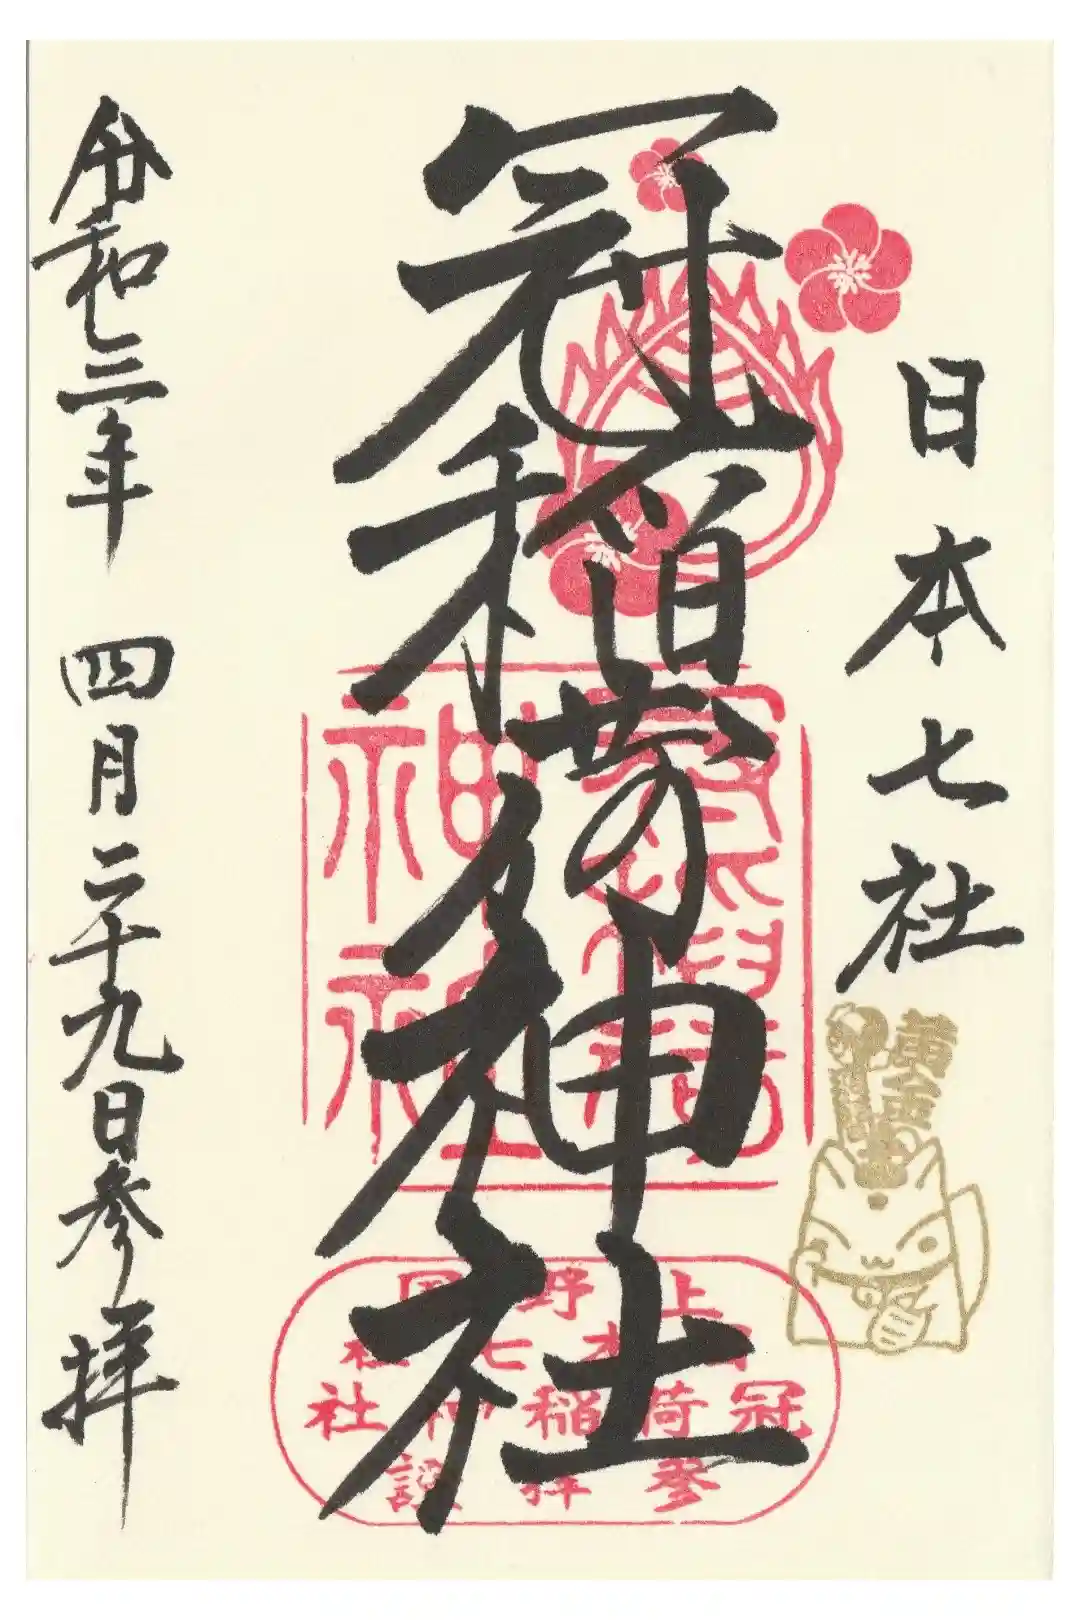 日本七社
冠稲荷神社
令和三年 四月二十九日参拝
黄金
上野国
日本七社
冠稲荷神社
参拝證